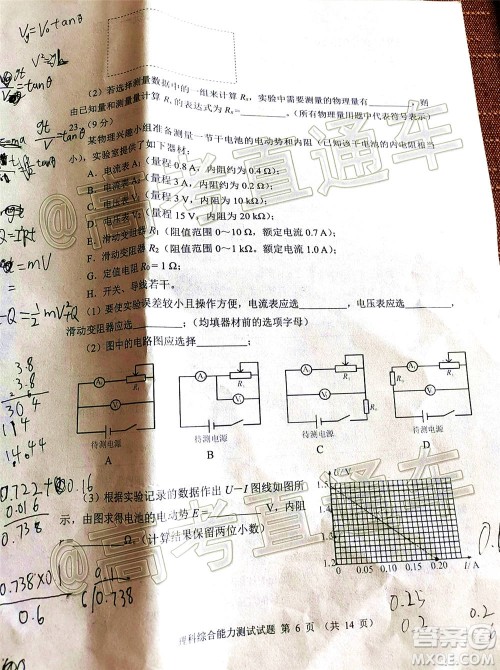 Vy=V₀tanθ
(2)若选择测量数据中的一组来计算 Rₓ,实验中需要测量的物理量有______,则
由已知量和测量量计算 Rₓ 的表达式为 Rₓ=______。(所有物理量用题中代表符号表示)
23.(9分)
某物理兴趣小组准备测量一节干电池的电动势和内阻(已知该干电池的内电阻相当
小),实验室提供了如下器材:
A.电流表 A₁(量程 0.8 A,内阻约为 0.4 Ω);
B.电流表 A₂(量程 3 A,内阻约为 0.2 Ω);
C.电压表 V₁(量程 3 V,内阻约为 10 kΩ);
D.电压表 V₂(量程 15 V,内阻约为 20 kΩ);
E.滑动变阻器 R₁(阻值范围 0~10 Ω,额定电流 0.7 A);
F.滑动变阻器 R₂(阻值范围 0~1 kΩ,额定电流 1.0 A);
G.定值电阻 R₀=1 Ω;
H.开关、导线若干。
(1)要使实验误差较小且操作方便,电流表应选______,电压表应选______,
滑动变阻器应选______;(均填器材前的选项字母)
(2)图中的电路图应选择______;
A V 待测电源 A
A V 待测电源 B
A V R₀ 待测电源 C
R₀ A V 待测电源 D
(3)根据实验记录的数据作出 U—I 图线如图所
示,由图求得电池的电动势 E=______V,内阻
______Ω。(计算结果保留两位小数)
U/V
1.3
1.2
0 0.10 0.20 I/A
3.8
3.8
304
114
14.44
0.016
0.738
0.738×0.1
0.6
6/0.738
0.25
0.2
理科综合能力测试试题 第 6 页 (共 14 页)
高考直通车
高考直通车
答案圈
MXQE.COM